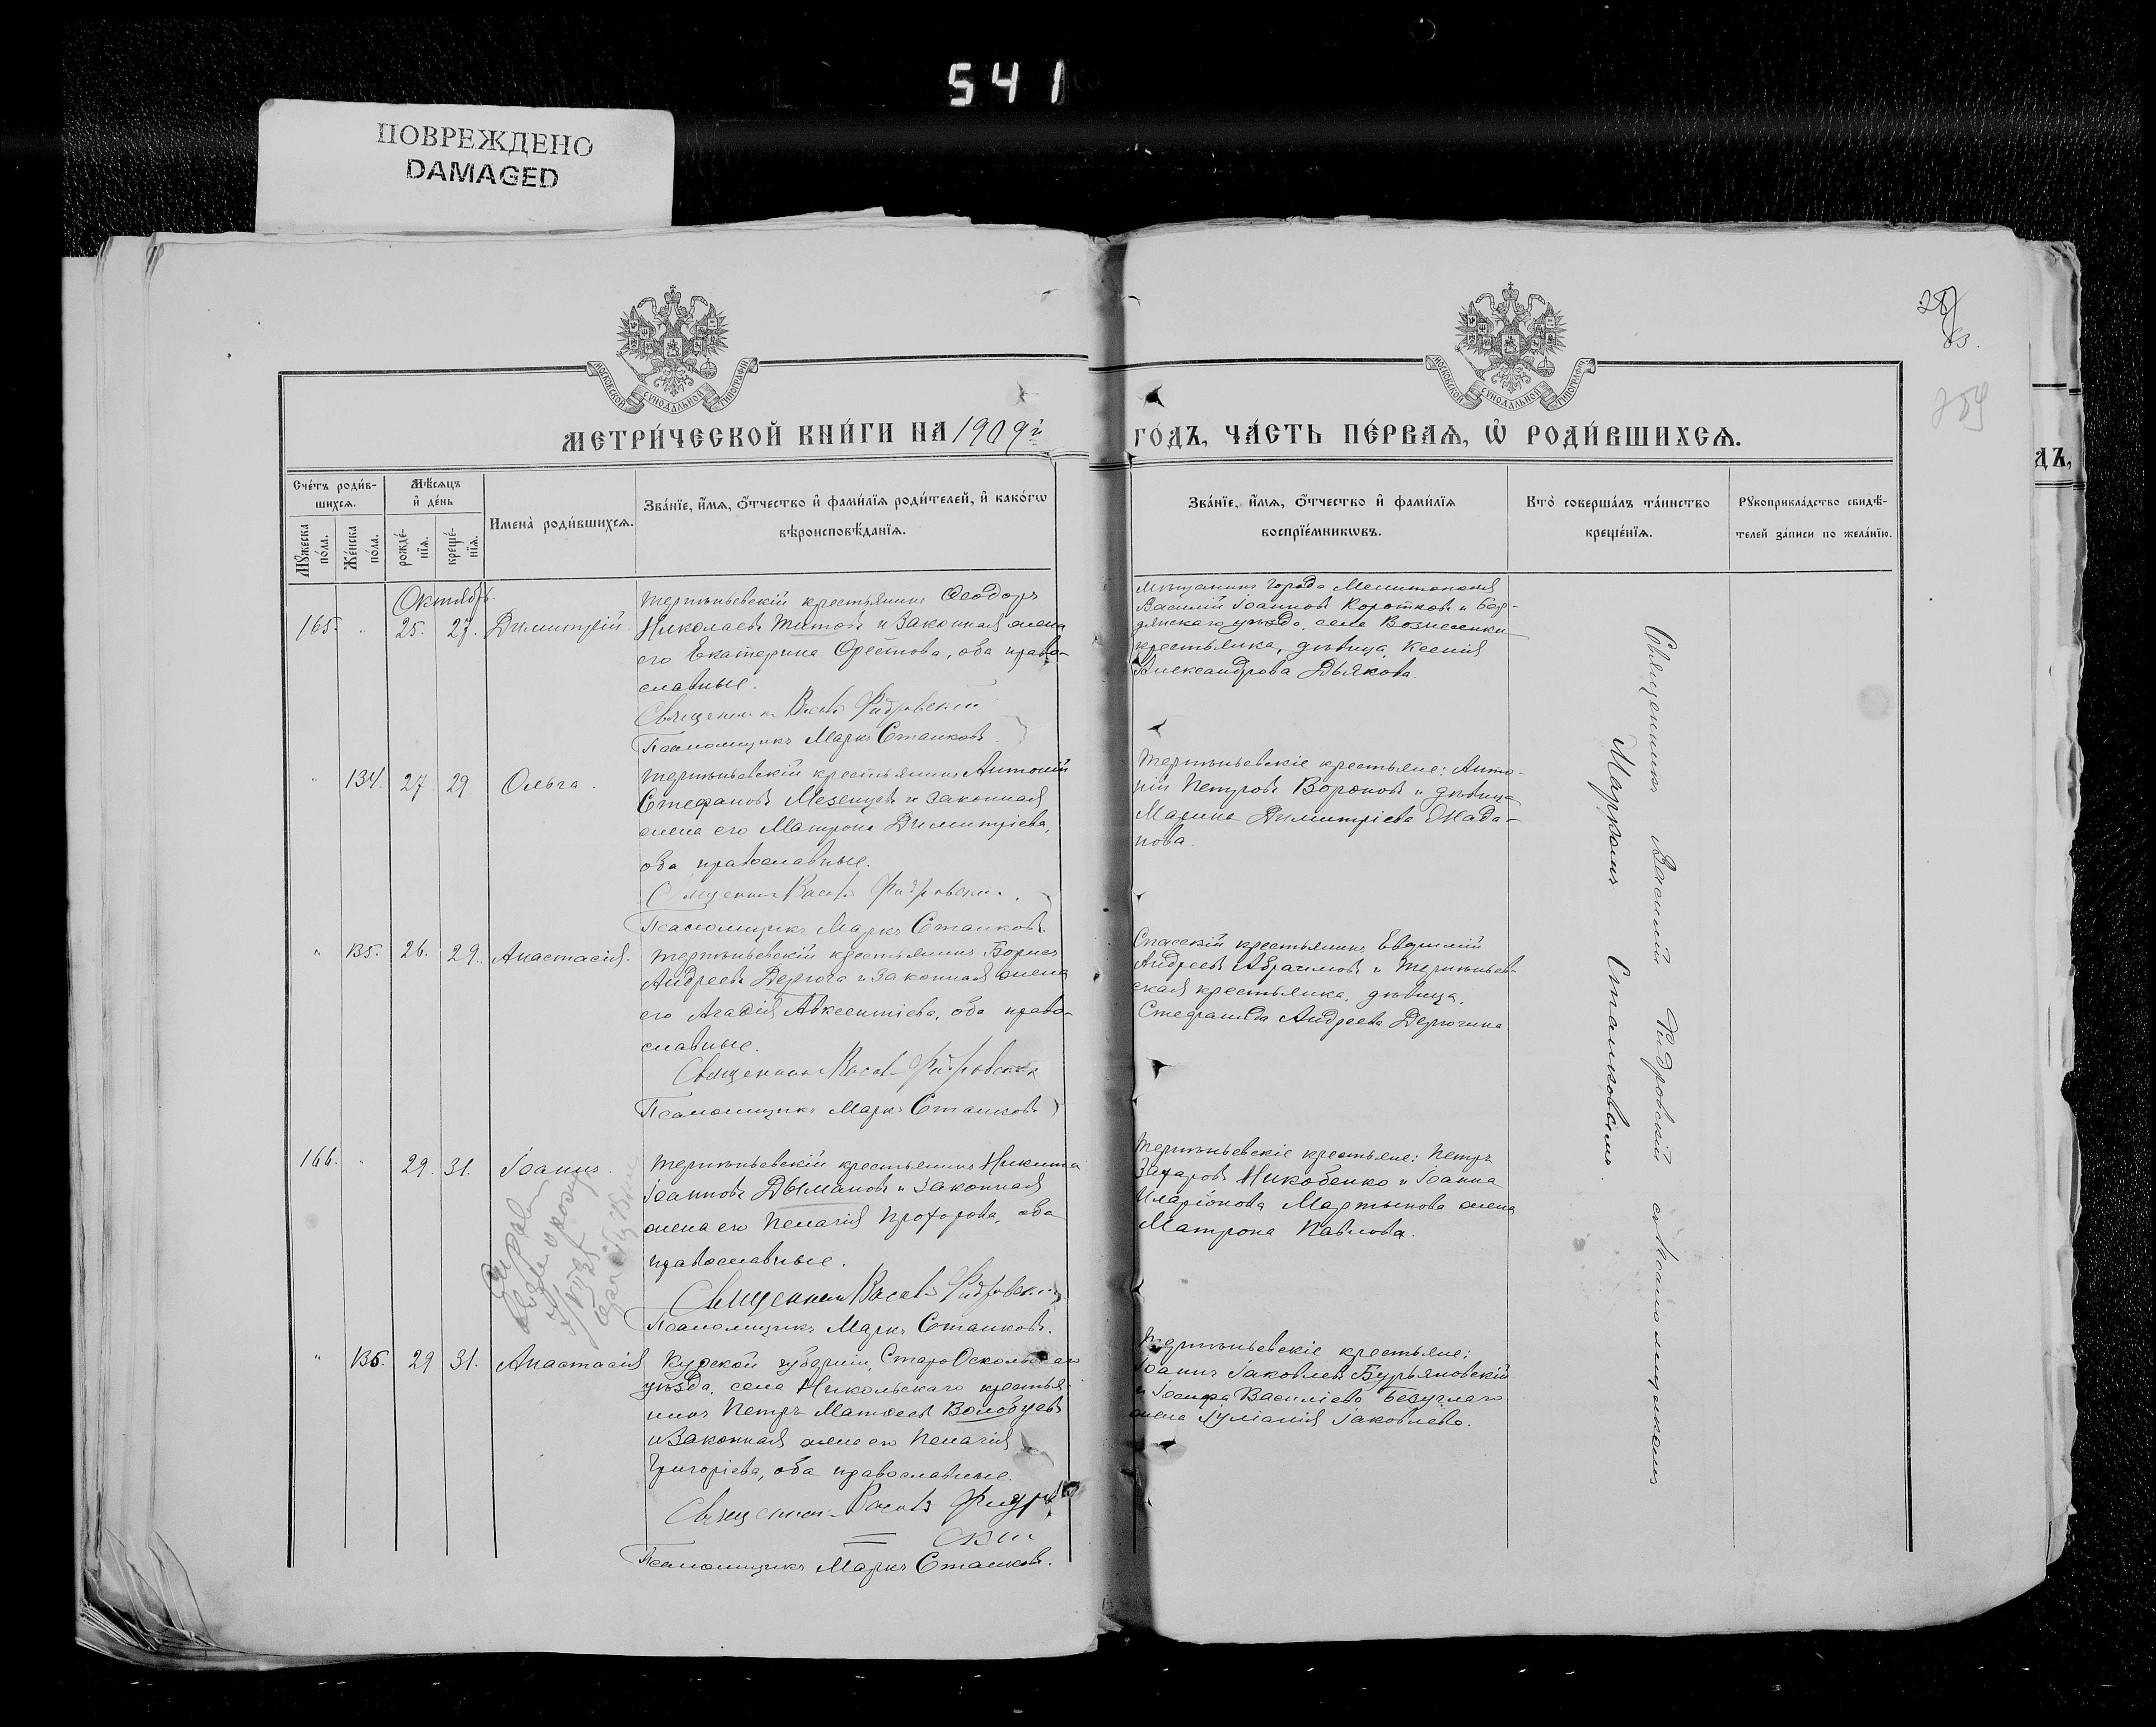 541
ПОВРЕЖДЕНО
DAMAGED
МОСКОВСКОЙ СУНОДАЛЬНОЙ ТИПОГРАФІИ
МОСКОВСКОЙ СУНОДАЛЬНОЙ ТИПОГРАФІИ
МЕТРИ́ЧЕСКОЙ КНИ́ГИ НА 1909й
ГО́ДЪ, ЧА́СТЬ ПЕ́РВАѦ, Ѡ РОДИ́ВШИХСѦ.
дъ,
Сче́тъ роди́в-
шихсѧ.
Мꙋ́жеска по́ла.
Же́нска по́ла.
Мѣ́сѧцъ
и҆ де́нь
рожде́-
нїѧ.
креще́-
нїѧ.
Имена̀ роди́вшихсѧ.
Зва́нїе, и҆́мѧ, ѻ҆́тчество и҆ фами́лїѧ роди́телей, и҆ како́гѡ
вѣроисповѣ́данїѧ.
Зва́нїе, и҆́мѧ, ѻ҆́тчество и҆ фами́лїѧ
воспрїе́мникѡвъ.
Кто̀ соверша́лъ та́инство
креще́нїѧ.
Рꙋкоприкла́дство свидѣ́-
телей за́писи по жела́нїю.
Октябрь.
165. " 25. 27. Димитрій.
Терпѣньевскій крестьянинъ Ѳеодоръ
Николаевъ Титовъ и законная жена
его Екатерина Орестова, оба право-
славные.
Священникъ Васил Фидровскій
Псаломщикъ Маркъ Станковъ.
Мѣщанинъ города Мелитополя
Василій Іоанновъ Коротковъ и Бер-
дянскаго уѣзда, села Вознесенки
крестьянка, дѣвица, Ксенія
Александрова Дьякова.
" 134. 27 29 Ольга.
Терпѣньевскій крестьянинъ Антоній
Стефановъ Мезенцевъ и законная
жена его Матрона Димитріева,
оба православные.
Священникъ Васил Фидровскій.
Псаломщикъ Маркъ Станковъ.
Терпѣньевскіе крестьяне: Анто-
ній Петровъ Вороновъ и дѣвица
Марина Димитріева Жада-
нова.
" 135. 26. 29. Анастасія.
Терпѣньевскій крестьянинъ Борисъ
Андреевъ Дерюга и законная жена
его Агафія Авксентіева, оба право-
славные.
Священникъ Васил Фидровскій
Псаломщикъ Маркъ Станковъ
Спасскій крестьянинъ Евѳимій
Андреевъ Абрагимовъ и Терпѣньев-
ская крестьянка, дѣвица,
Стефанида Андреева Дерюгина
166. " 29. 31. Іоаннъ.
Терпѣньевскій крестьянинъ Никита
Іоанновъ Дымановъ и законная
жена его Пелагія Прохорова, оба
православные.
Священникъ Васил Фидровскій
Псаломщикъ Маркъ Станковъ.
Терпѣньевскіе крестьяне: Петръ
Захаровъ Никобенко и Іоанна
Иларіонова Мартынова жена
Матрона Павлова.
" 136. 29 31. Анастасія
Курской губерніи, СтароОскольскаго
уѣзда, села Никольскаго крестья-
нинъ Петръ Матѳеевъ Волобуевъ
и законная жена его Пелагія
Григоріева, оба православные.
Священникъ Васил Фидров
скій
Псаломщикъ Маркъ Станковъ.
Терпѣньевскіе крестьяне:
Іоаннъ Іаковлевъ Бурьяновскій
и Іосифа Василіева Безуглаго
жена Іуліанія Іаковлева.
Священникъ Василій Фидровскій съ псаломщикомъ
Маркомъ Станковымъ.